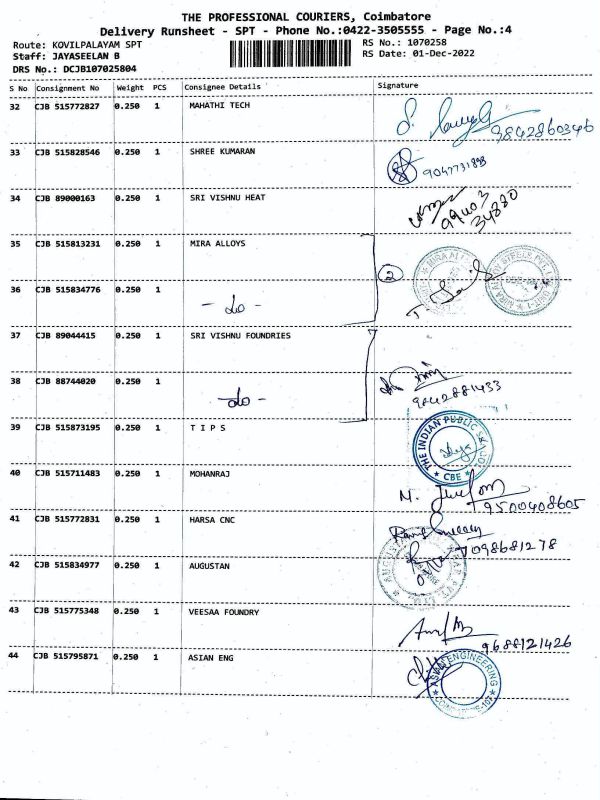 THE PROFESSIONAL COURIERS, Coimbatore
Delivery Runsheet - SPT - Phone No.:0422-3505555 - Page No.:4
Route: KOVILPALAYAM SPT RS No.: 1070258
Staff: JAYASEELAN B RS Date: 01-Dec-2022
DRS No.: DCJB107025804
S No Consignment No Weight PCS Consignee Details Signature
32 CJB 515772827 0.250 1 MAHATHI TECH
9842860346
33 CJB 515828546 0.250 1 SHREE KUMARAN
34 CJB 89000163 0.250 1 SRI VISHNU HEAT
99403
34880
35 CJB 515813231 0.250 1 MIRA ALLOYS
2
36 CJB 515834776 0.250 1
- do -
37 CJB 89044415 0.250 1 SRI VISHNU FOUNDRIES
38 CJB 88744020 0.250 1
- do -
9842881433
39 CJB 515873195 0.250 1 T I P S
THE INDIAN PUBLIC
CBE
40 CJB 515711483 0.250 1 MOHANRAJ
9500408605
41 CJB 515772831 0.250 1 HARSA CNC
7098681278
42 CJB 515834977 0.250 1 AUGUSTAN
43 CJB 515775348 0.250 1 VEESAA FOUNDRY
9688121426
44 CJB 515795871 0.250 1 ASIAN ENG
ASIAN ENGINEERING